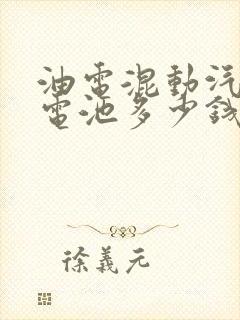 油電混動汽
電池多少錢
徐義元